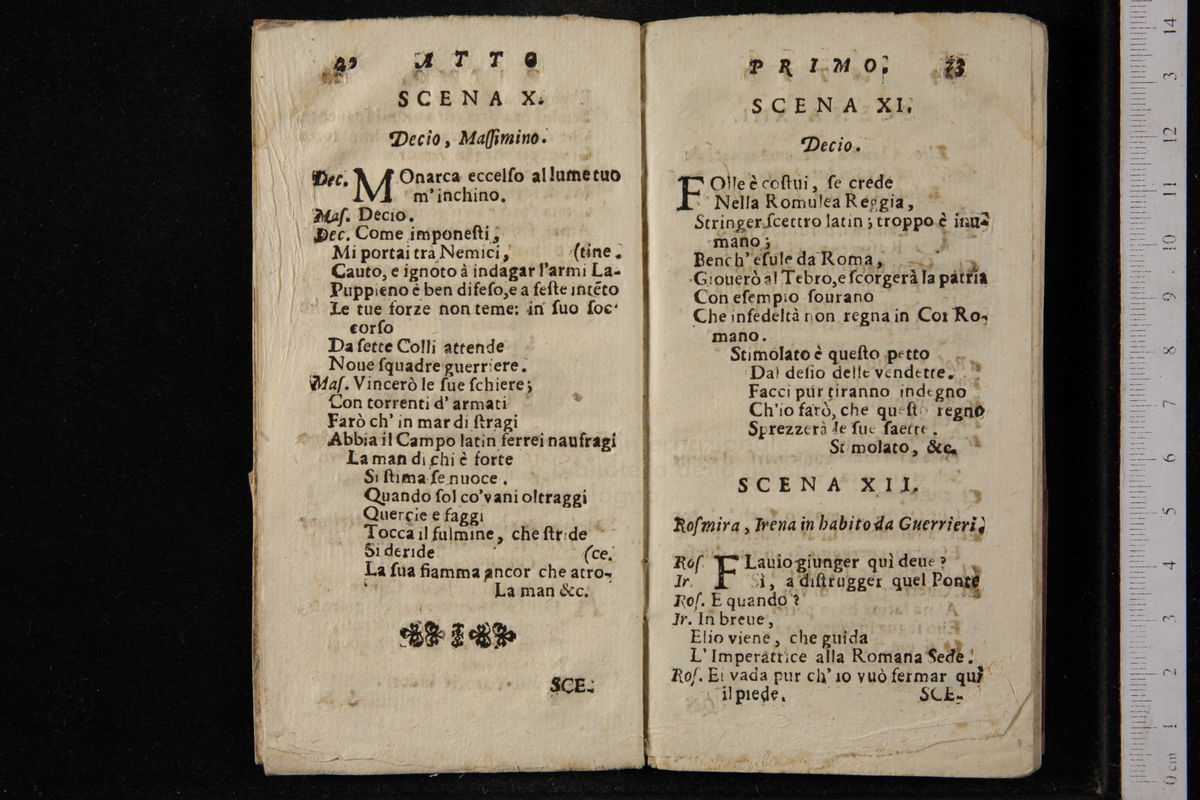 ATTO
SCENA X.
Decio, Maſſimino.
Dec. MOnarca eccelſo al lume tuo
m'inchino.
Maſ. Decio.
Dec. Come imponeſti,
Mi portai trà Nemici, (tine.
Cauto, e ignoto à indagar l'armi La-
Puppieno è ben difeſo, e a feſte intẽto
Le tue forze non teme: in ſuo ſoc-
corſo
Da ſette Colli attende
Noue ſquadre guerriere.
Maſ. Vincerò le ſue ſchiere;
Con torrenti d'armati
Farò ch'in mar di ſtragi
Abbia il Campo latin ferrei naufragi
La man di chi è forte
Si ſtima ſe nuoce.
Quando ſol co'vani oltraggi
Quercie e faggi
Tocca il fulmine, che ſtride
Si deride (ce.
La ſua fiamma ancor che atro-
La man &c.
SCE-
PRIMO. 23
SCENA XI.
Decio.
FOlle è coſtui, ſe crede
Nella Romulea Reggia,
Stringer ſcettro latin; troppo è inu-
mano;
Bench'eſule da Roma,
Giouerò al Tebro, e ſcorgerà la patria
Con eſempio ſourano
Che infedeltà non regna in Cor Ro-
mano.
Stimolato è queſto petto
Dal deſio delle vendette.
Facci pur tiranno indegno
Ch'io farò, che queſto regno
Sprezzerà le ſue ſaette.
Stimolato, &c.
SCENA XII.
Roſmira, Irena in habito da Guerrieri.
Roſ. FLauio giunger quì deue?
Ir. Sì, a diſtrugger quel Ponte
Roſ. E quando?
Ir. In breue,
Elio viene, che guida
L'Imperatrice alla Romana Sede.
Roſ. Ei vada pur ch'io vuò fermar quì
il piede.
SCE-
0 cm 1 2 3 4 5 6 7 8 9 10 11 12 3 14